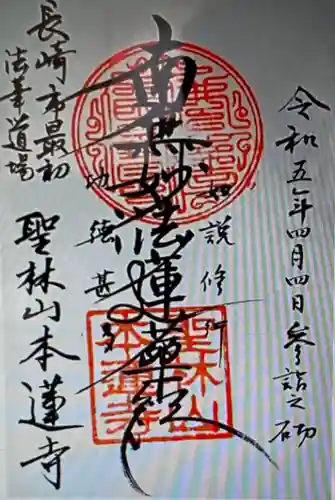 令和五年四月四日参詣之砌
如説修行
南無妙法蓮華経
功徳甚多
長崎市最初
法華道場
聖林山本蓮寺
聖林山
本蓮寺